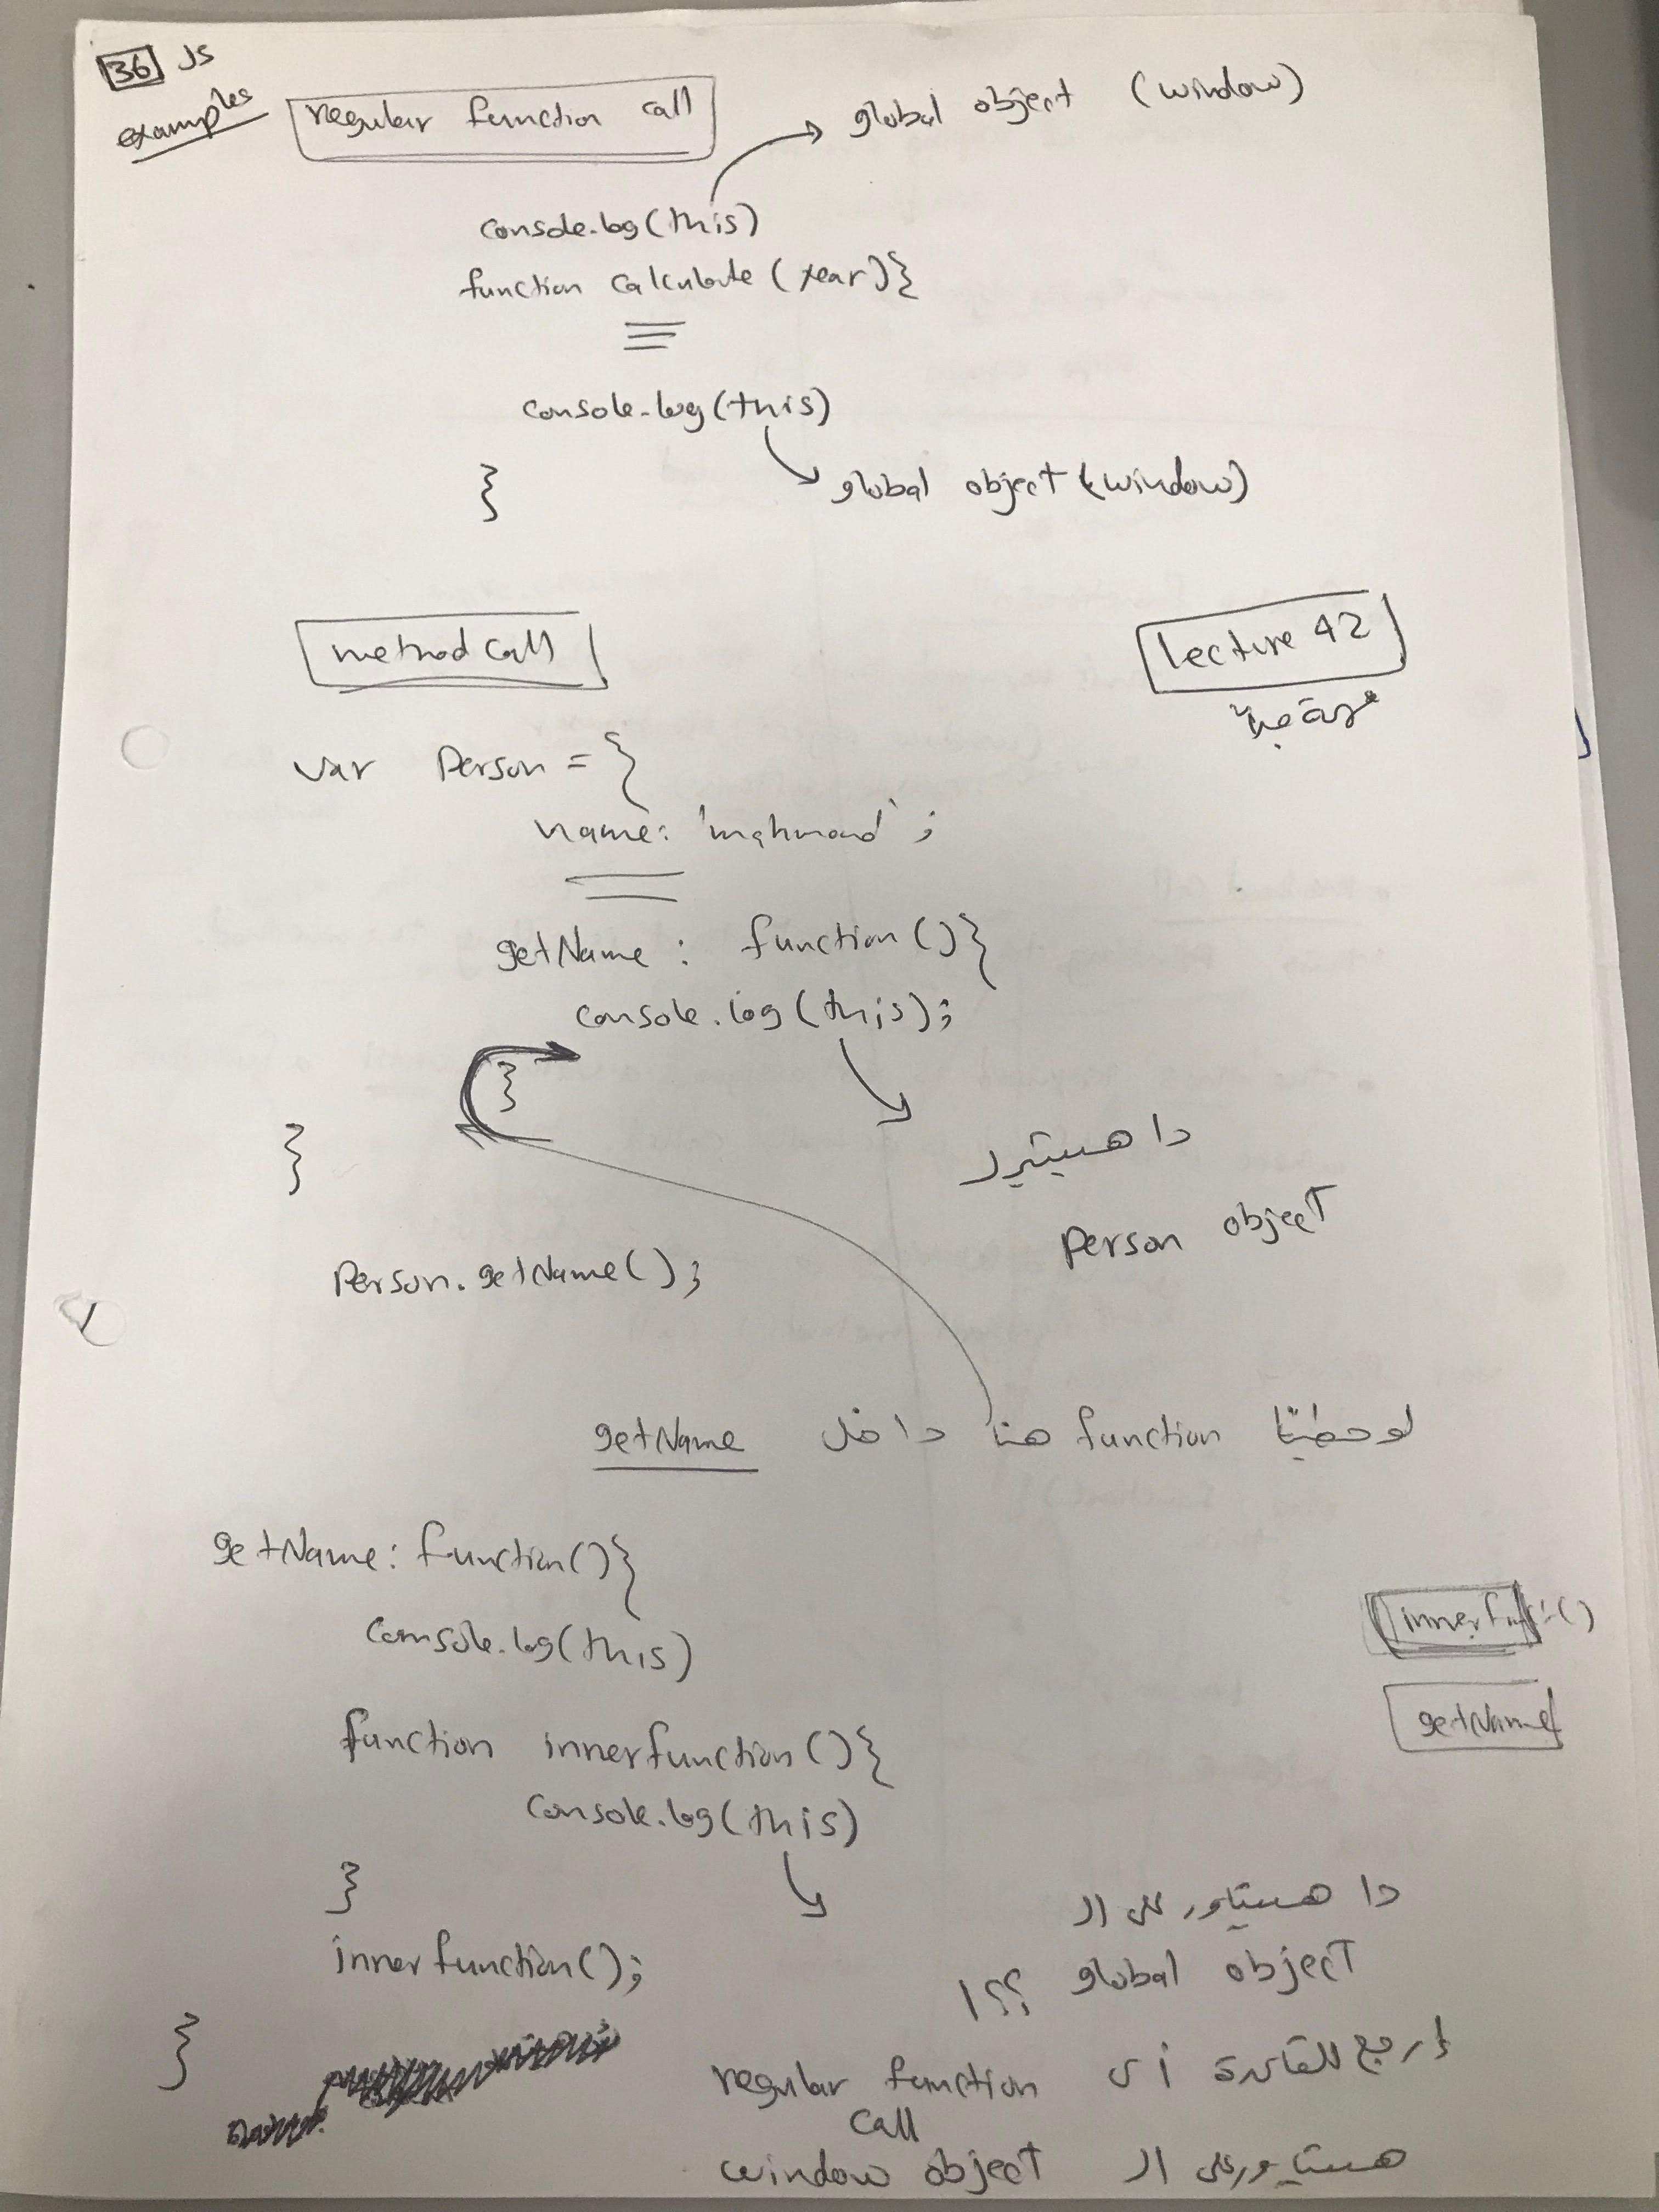 36 JS
examples
regular function call
global object (window)
console.log(this)
function calculate (year){
console.log(this)
global object (window)
}
method call
lecture 42
مهمة جدًا
var Person = {
name: 'mahmoud';
getName : function (){
console.log (this);
}
}
دا هيبقى
Person object
Person.getName();
لو حطينا function هنا داخل getName
getName: function(){
Console.log(this)
innerfun()
getName
function innerfunction (){
Console.log(this)
}
دا هيشاور على ال
global object ؟؟!
innerfunction();
}
إرجع للقاعدة أى regular function
call
هيشاور على ال window object